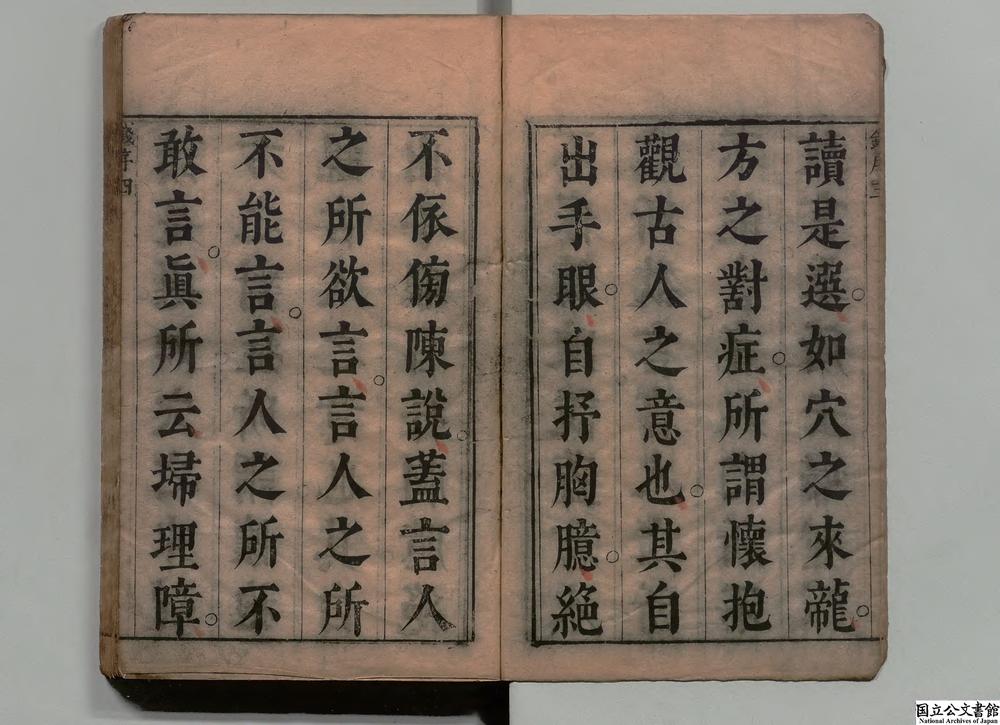 讀是選如穴之來龍
方之對症所謂懷抱
觀古人之意也其自
出手眼自抒胸臆絕
不依傍陳說蓋言人
之所欲言言人之所
不能言言人之所不
敢言眞所云埽理障
序四
国立公文書館
National Archives of Japan